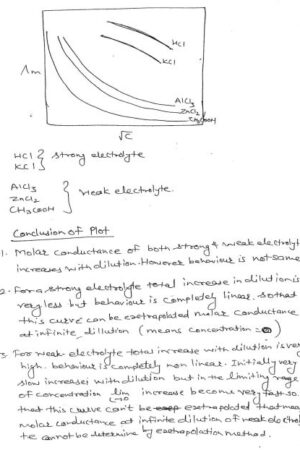 HCl
KCl
Λm
AlCl3
ZnCl2
CH3COOH
√C
HCl } strong electrolyte
KCl
AlCl3
ZnCl2 } Weak electrolyte.
CH3COOH
Conclusion of Plot
1. Molar conductance of both strong & weak electrolyt
increases with dilution. However behaviour is not same
2. For a strong electrolyte total increase in dilution is
very less but behaviour is completely linear. so that
this curve can be extrapolated molar conductance
at infinite dilution (means concentration =0)
3. For weak electrolyte total increase with dilution is ver
high. behaviour is completely non linear. Initially very
slow increases with dilution but in the limiting
of concentration lim increase become very fast so
that this curve can't be extrapolated that mea
molar conductance at infinite dilution of weak electrol
te cannot be determine by extrapolation method.